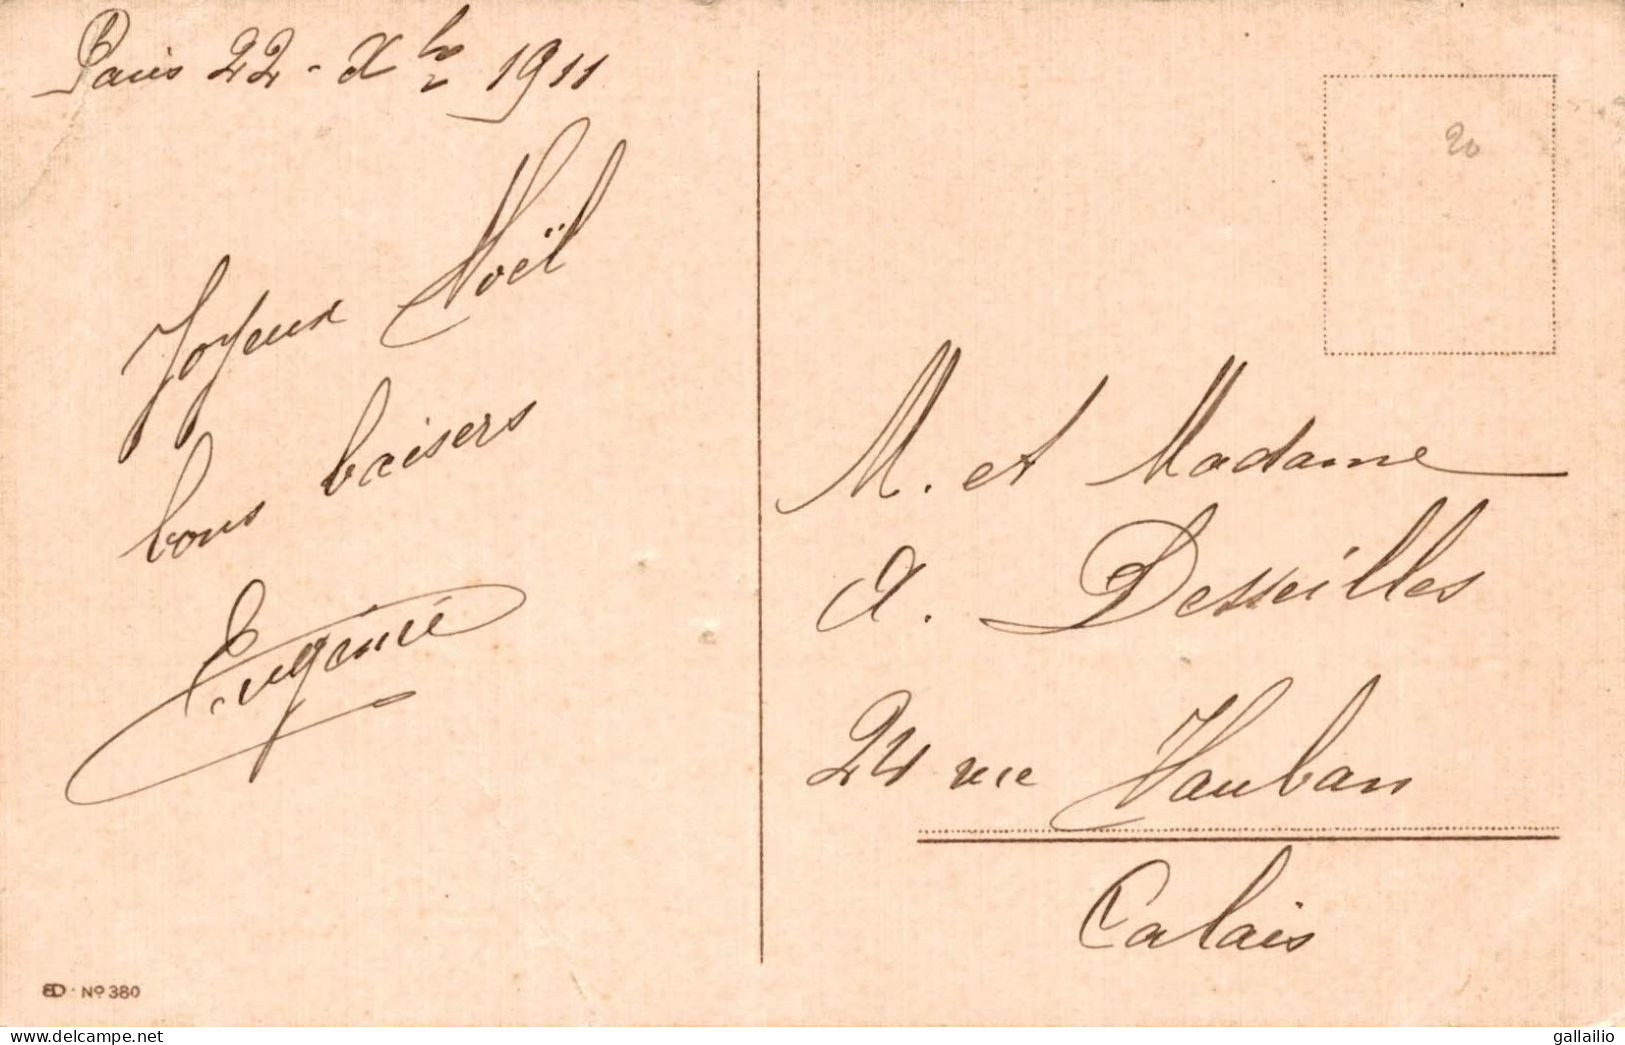 Paris 22 - Xbre 1911
Joyeux Noël
bons baisers
Eugénie
20
M. et Madame
A. Desseilles
24 rue Vauban
Calais
No 380
gallailio